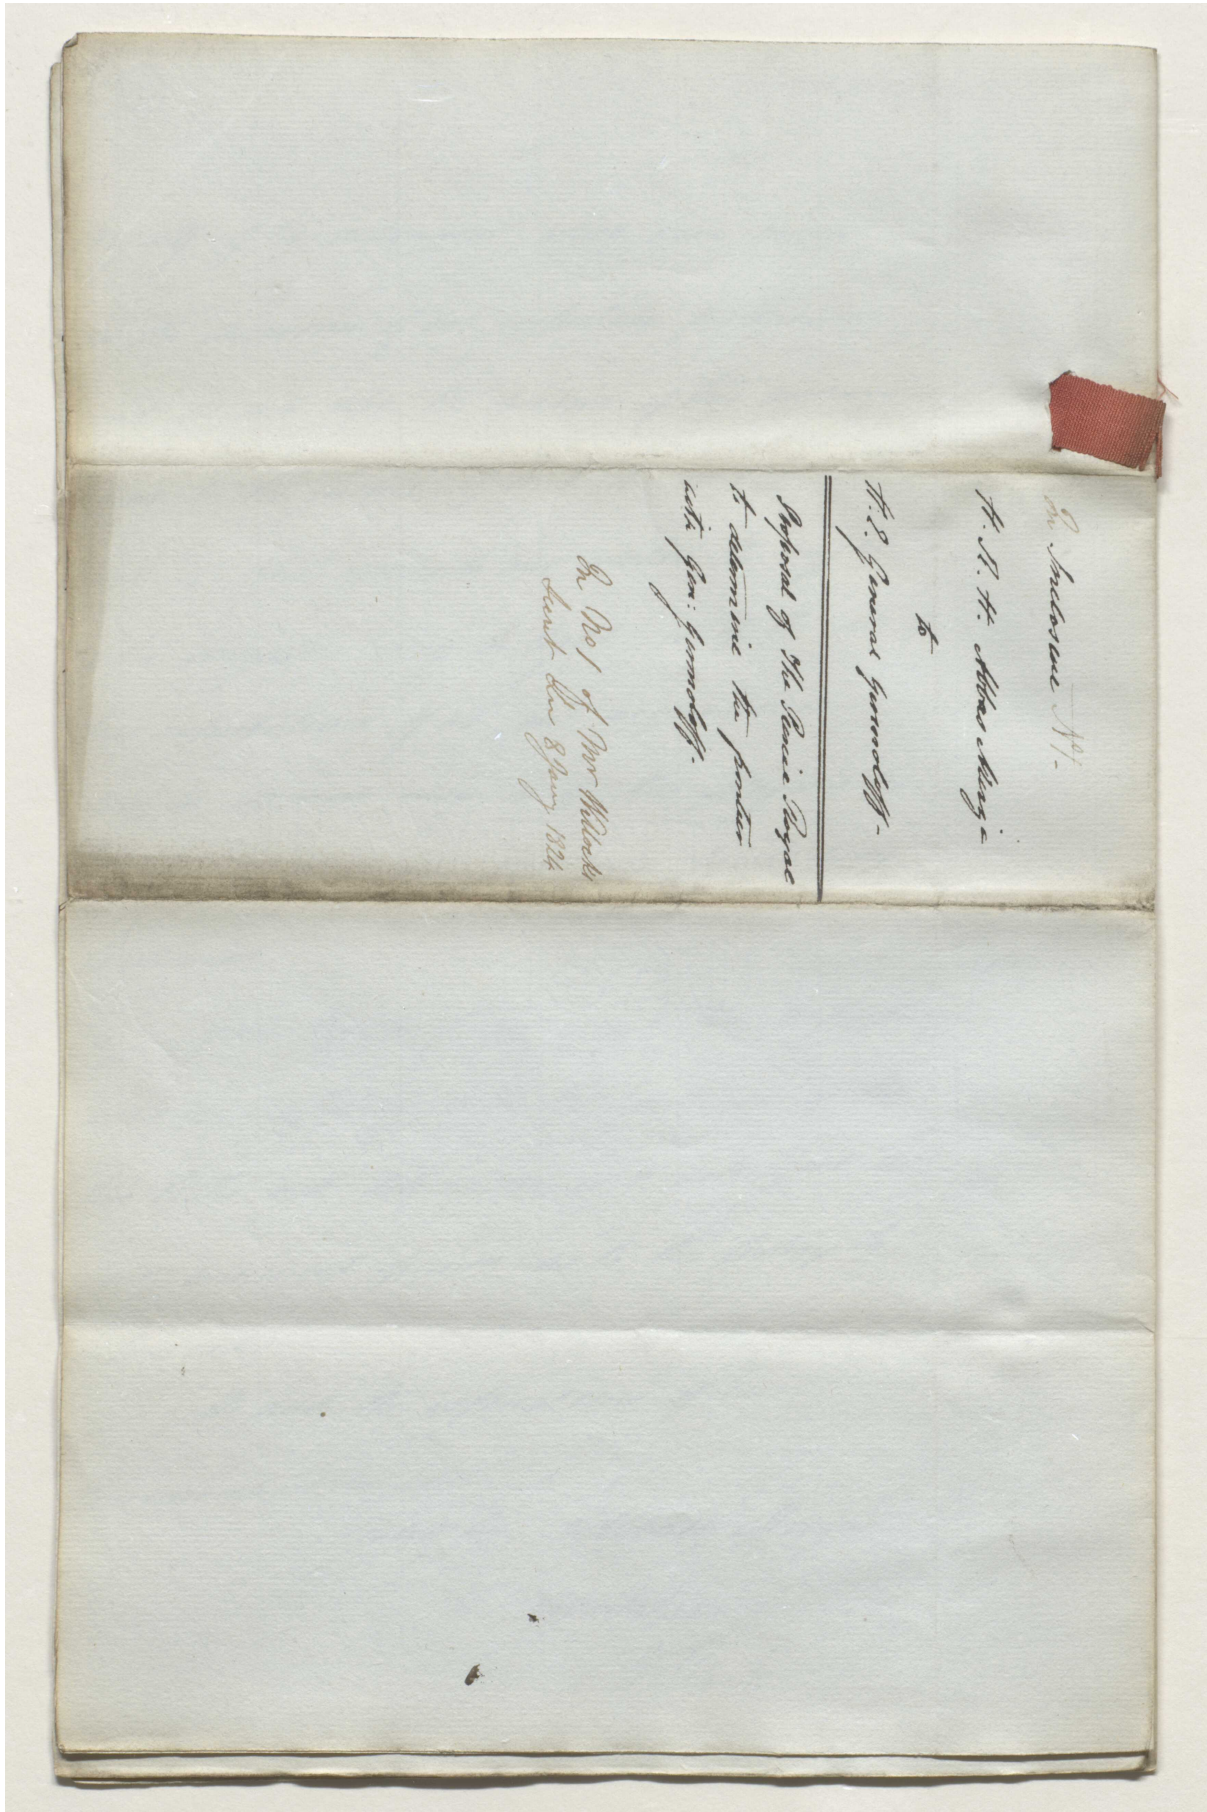 In Inclosure No 1.
H. R. H. Abbas Mirza
to
H. E. General Yermoloff.
Proposal of The Prince Royal
to determine the frontier
with Gen: Yermoloff.
In No 1 of Mr Willock's
Secret Dn 8 Jany 1824